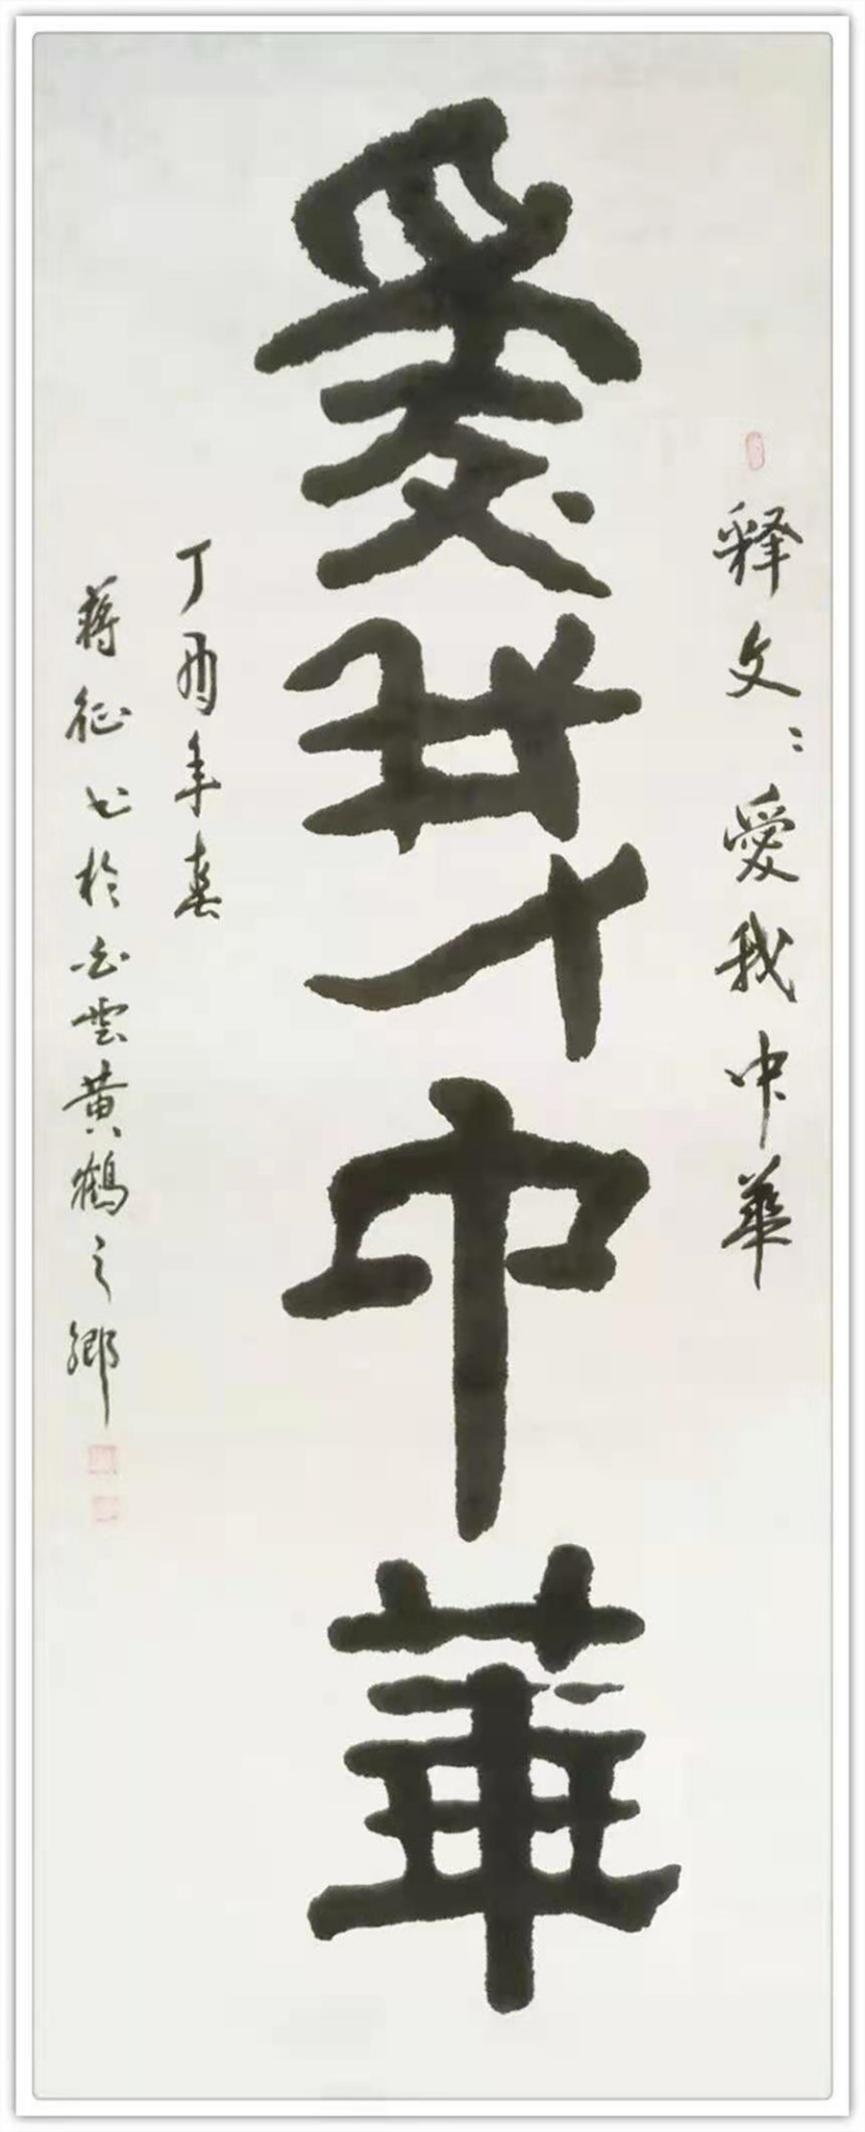 释文：愛我中華
愛我中華
丁酉年春
蒋征书於白雲黄鶴之鄉